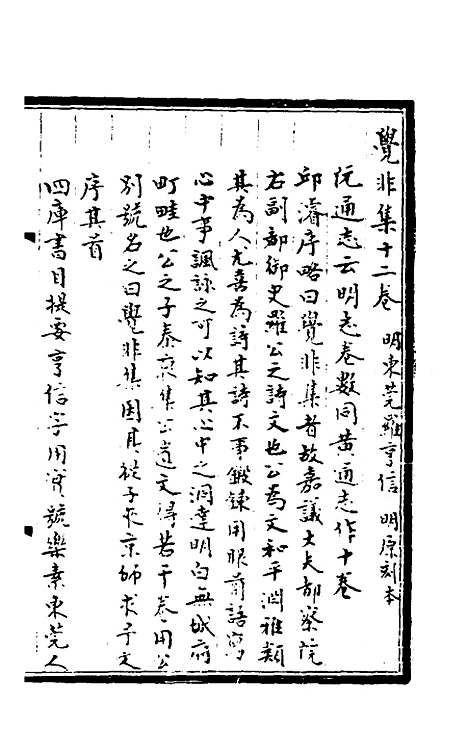 覺非集十二卷 明東莞羅亨信 明原刻本
阮通志云明志卷數同黃通志作十卷
邱濬序略曰覺非集者故嘉議大夫都察院
右副都御史羅公之詩文也公為文和平淵雅類
其為人尤喜為詩其詩不事鍛鍊用眼前語寫
心中事諷詠之可以知其心中之洞達明白無城府
町畦也公之子泰裒集公遺文得若干卷用公
別號名之曰覺非集因其從子來京師求予文
序其首
四庫書目提要亨信字用實號樂素東莞人